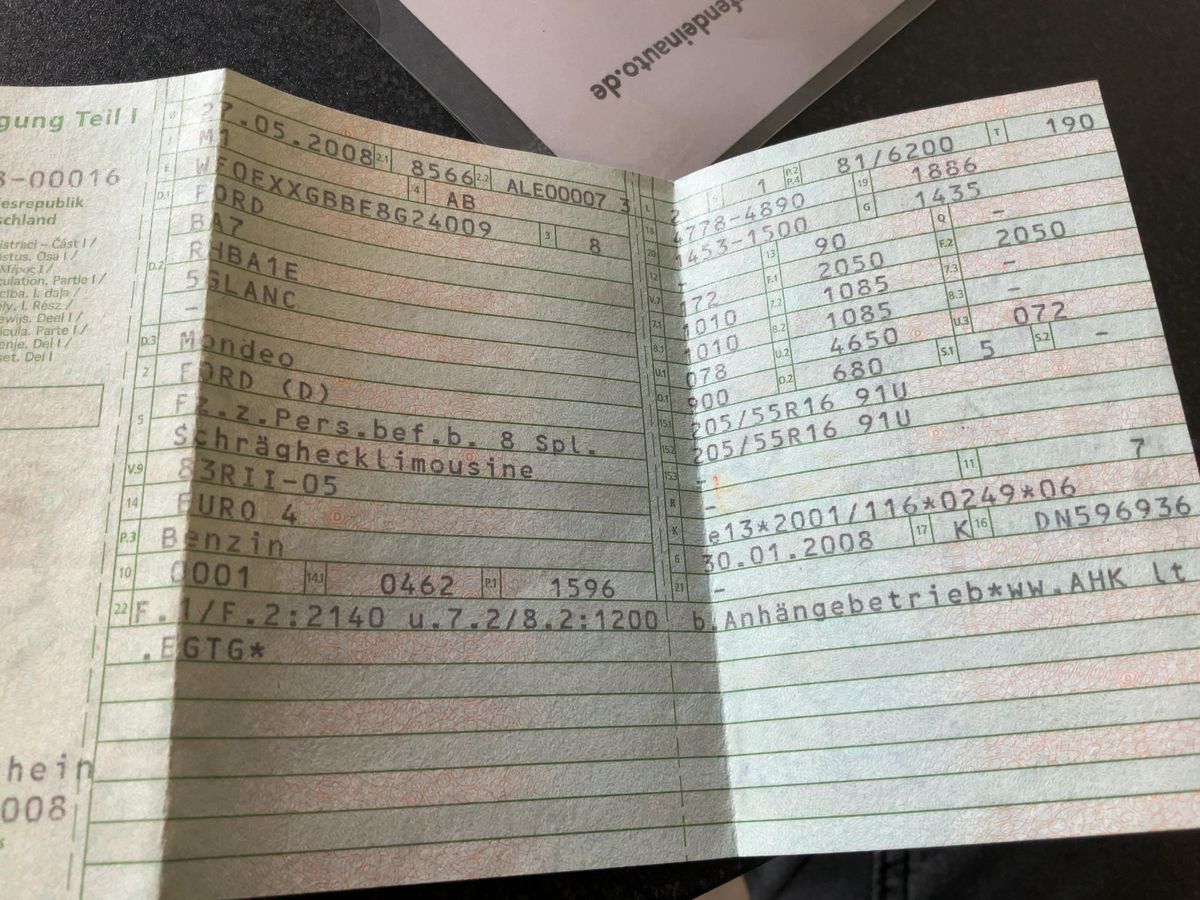 fendeinauto.de
gung Teil I
8-00016
esrepublik
schland
istraci – Část I /
istus. Osa I /
Mépoς I /
culation. Partie I /
cība. I. daļa /
ly. I. Rész /
ewijs. Deel I /
cula. Parte I /
enje. Del I /
set. Del I
hein
008
B 27.05.2008 2.1 8566 2.2 ALE00007 3
J M1 4 AB
E WF0EXXGBBE8G24009 3 8
D.1 FORD
BA7
D.2 RHBA1E
5GLANC
-
D.3 Mondeo
2 FORD (D)
Fz.z.Pers.bef.b. 8 Spl.
5 Schräghecklimousine
V.9 83RII-05
14 EURO 4
P.3 Benzin
10 0001 14.1 0462 P.1 1596
L 2 9 1 P.2 P.4 81/6200 T 190
18 4778-4890 19 1886
20 1453-1500 G 1435
12 - 13 90 Q -
V.7 172 F.1 2050 F.2 2050
7.1 1010 7.2 1085 7.3 -
8.1 1010 8.2 1085 8.3 -
U.1 078 U.2 4650 U.3 072
O.1 900 O.2 680 S.1 5 S.2 -
15.1 205/55R16 91U
15.2 205/55R16 91U
15.3 -
R - 11 7
K e13*2001/116*0249*06
6 30.01.2008 17 K 16 DN596936
21 -
22 F.1/F.2:2140 u.7.2/8.2:1200 b.Anhängebetrieb*ww.AHK lt
.EGTG*